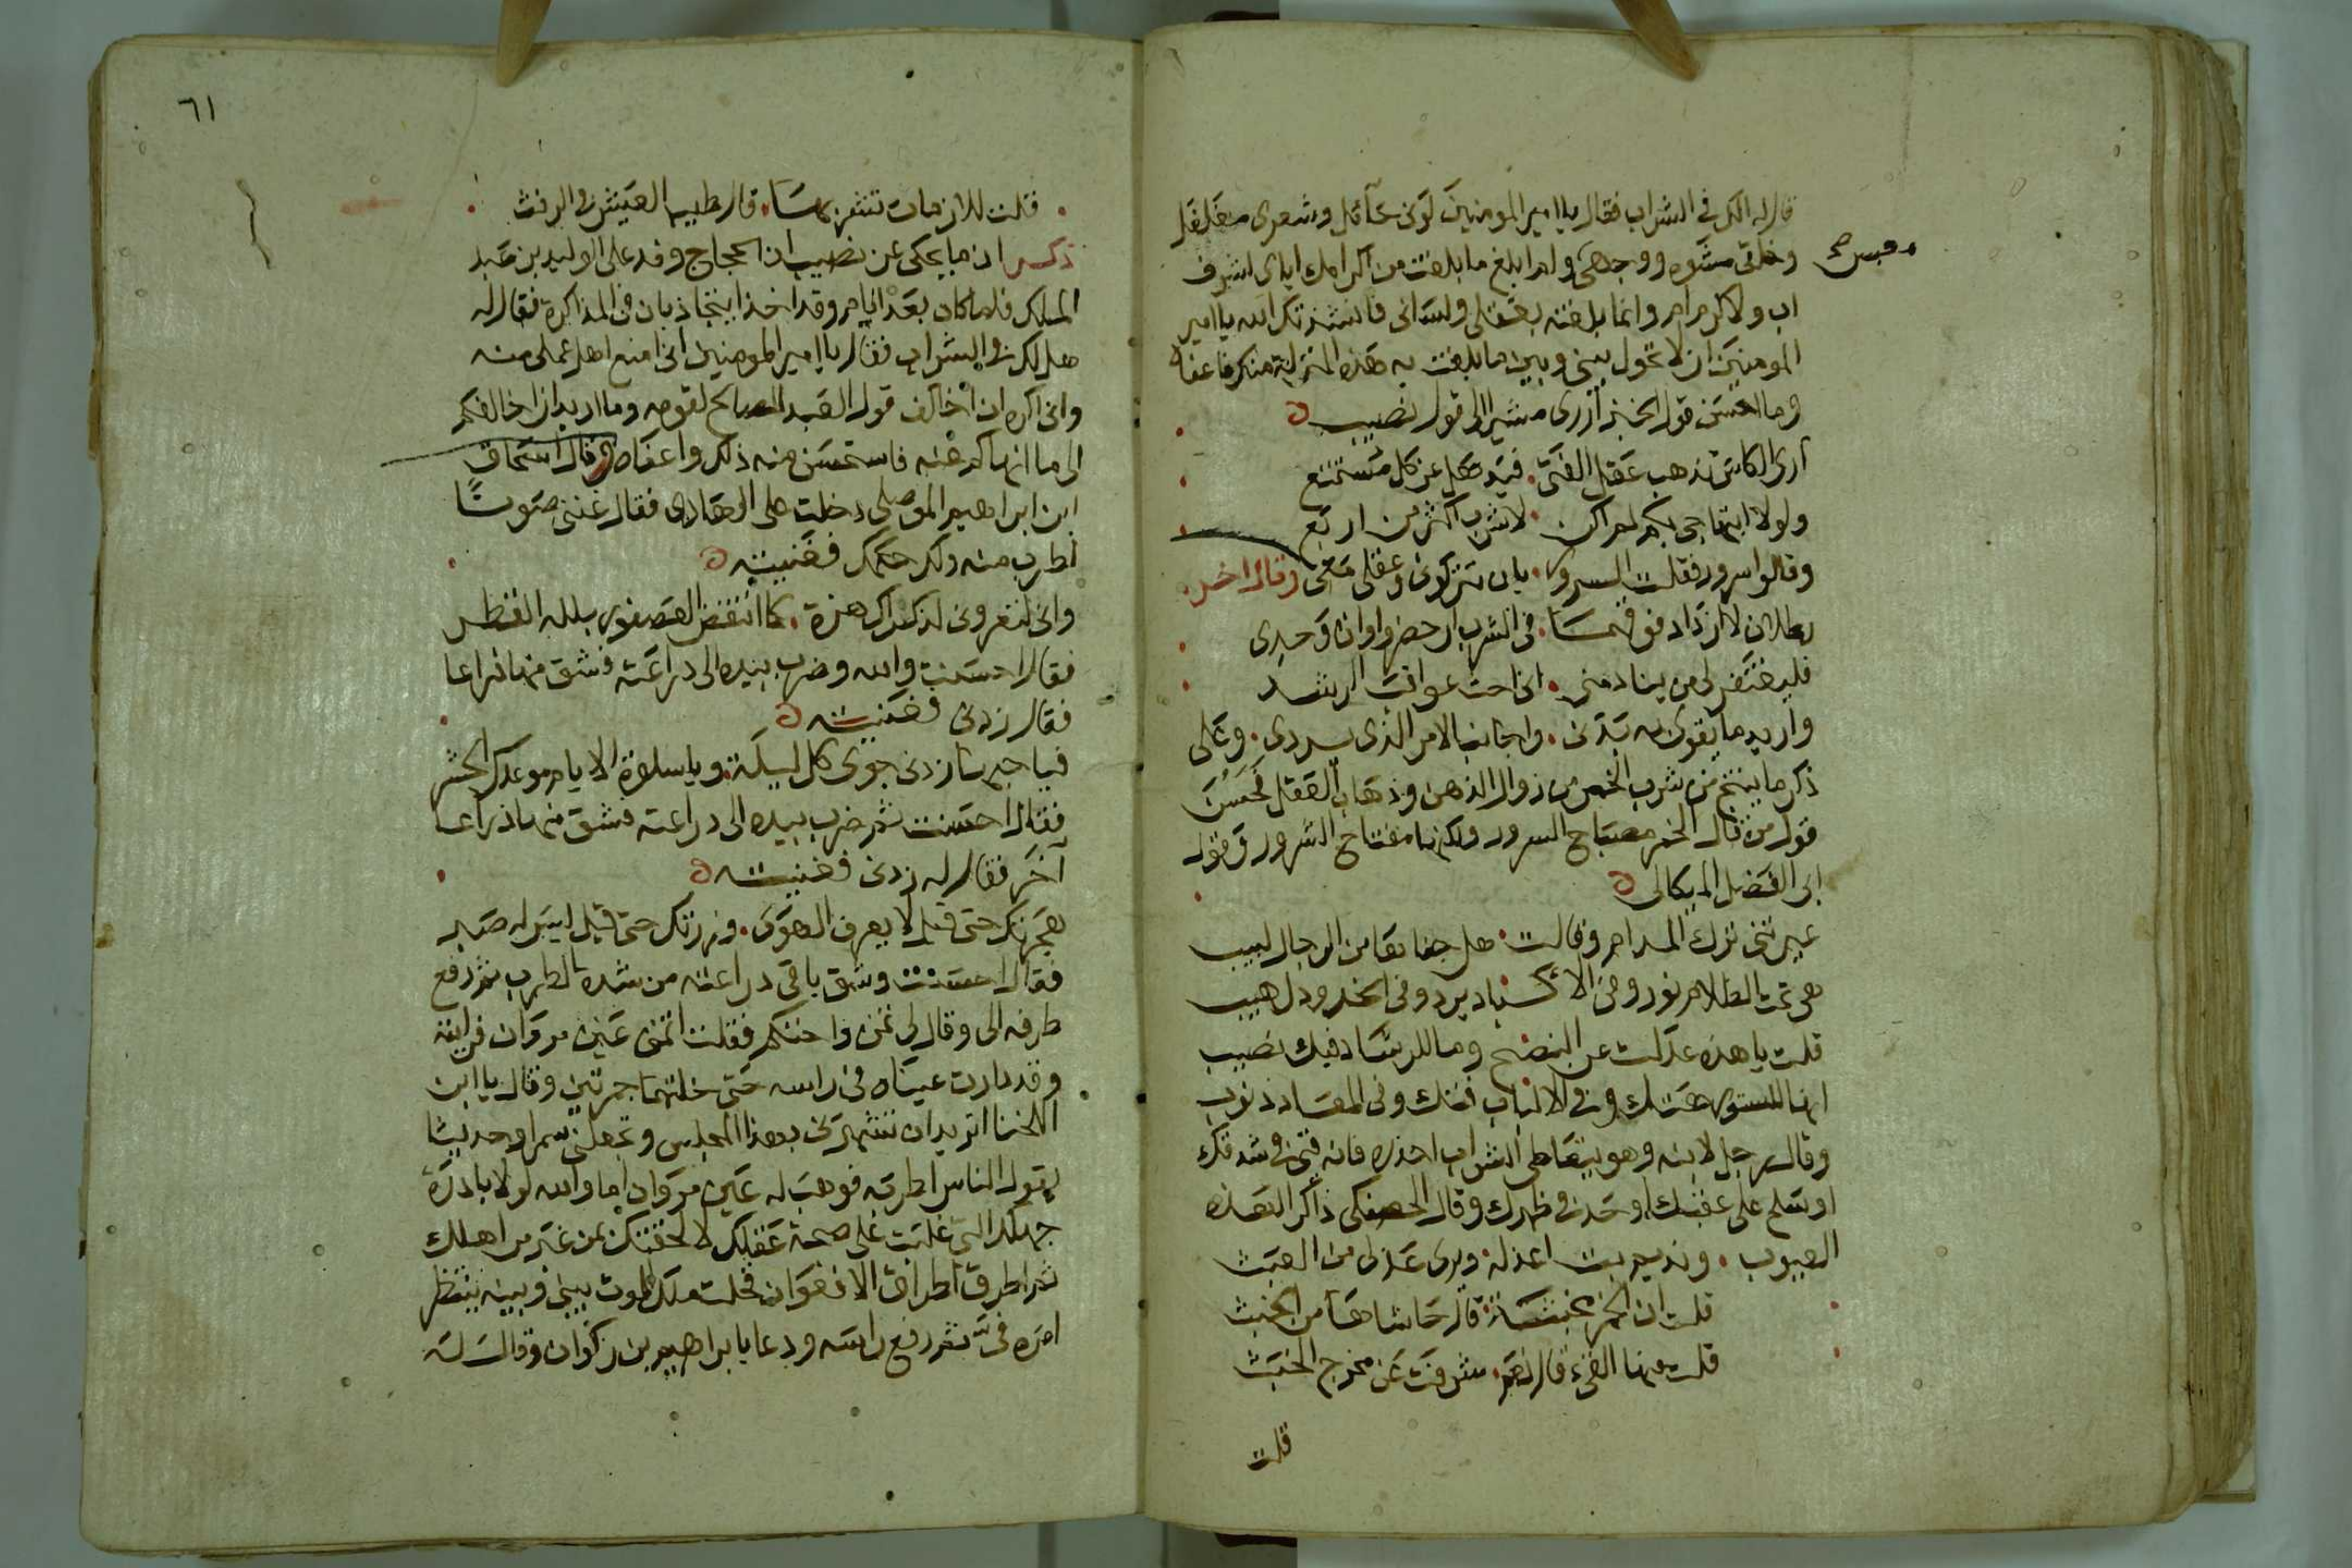 قال له الك في الشراب فقال يا امير المومنين لوني حائل وشعري مفلفل
وخلقي مشوه ووجهي ولم ابلغ ما بلغت من اكرامك اياي لشرف
اب ولا كرم ام وانما بلغته بعقلي ولساني فانشدتك الله يا امير
المومنين ان لا تحول بيني وبين ما بلغت به هذه المنزلة منك فاعفاه
وما احسن قول الخبز أرزي مشيرا الى قول نصيب
أرى الكاس تذهب عقل الفتى . فيذهل عن كل مستمتع
ولولا ابتهاجي بكم لم اكن . لاشرب اكثر من اربع
وقالوا سرور فقلت السرور . بان تتركوني وعقلي معي وقال اخر
رطلان لا ازداد فوقهما . في الشرب ان حضروا وان وحدي
فليغتفر لي من ينادمني . اني احب عواقب الرشد
واريد ما يقوى به بدني . واجانب الامر الذي يردي . وعلى
ذكر ما ينتج من شرب الخمر من زوال الذهن وذهاب العقل فحسن
قول من قال الخمر مصباح السرور ولكنها مفتاح الشرور وقول
ابي الفضل الميكالي
عيرتني ترك المدام وقالت . هل جفاها من الرجال لبيب
هي تحت الظلام نور وفي الاكباد برد وفي الخدود لهيب
قلت يا هذه عدلت عن النصح وما للرشاد فيك نصيب
انها للستور هتك وفي الالباب فتك وفي المعاد ذنوب
وقال رجل لابنه وهو يتعاطى الشراب احذره فانه قيء في شدقك
او سلح على عقبك او حد في ظهرك وقال الحصفكي ذاكر لهذه
العيوب . ونديم بت اعذله . ويرى عذلي من العبث
قلت ان الخمر مخبثة . قال حاشاها من الخبث
قلت منها القيء قال نعم . شرفت عن مخرج الخبث
قلت
٦١
قلت فالارفاث تتبعها . قال طيب العيش في الرفث
ذكر ان ما يحكى عن نصيب ان الحجاج وفد على الوليد بن عبد
الملك فلما كان بعد ايام وقد اخذا يتجاذبان في المذاكرة فقال له
هل لك في الشراب فقال يا امير المومنين اني امنع اهل عملي منه
واني اكره ان أخالف قول العبد الصالح لقومه وما اريد ان اخالفكم
الى ما انهاكم عنه فاستحسن منه ذلك واعفاه وقال اسحاق
ابن ابراهيم الموصلي دخلت على الهادي فقال غنني صوتا
اطرب منه ولك حكمك فغنيته
واني لتعروني لذكراك هزة . كما انتفض العصفور بلله القطر
فقال احسنت والله وضرب بيده الى دراعته فشق منها ذراعا
فقال زدني فغنيته
فيا حبها زدني جوى كل ليلة . ويا سلوة الايام موعدك الحشر
فقال احسنت ثم ضرب بيده الى دراعته فشق منها ذراعا
آخر فقال له زدني فغنيته
هجرتك حتى قيل لا يعرف الهوى . وزرتك حتى قيل ليس له صبر
فقال احسنت وشق باقي دراعته من شدة الطرب ثم رفع
طرفه الي وقال لي تمن واحتكم فقلت اتمنى عين مروان فرايته
وقد دارت عيناه في راسه حتى خلتهما جمرتين وقال يا ابن
اللخنا اتريد ان تشهرني بهذا المجلس وتجعلني سمرا وحديثا
يقول الناس اطربه فوهب له عين مروان اما والله لولا بادرة
جهلك التي غلبت على صحة عقلك لالحقتك بمن غبر من اهلك
ثم اطرق اطراق الافعوان فخلت ملك الموت بيني وبينه ينتظر
امره في ثم رفع راسه ودعا بابراهيم بن ذكوان وقال له